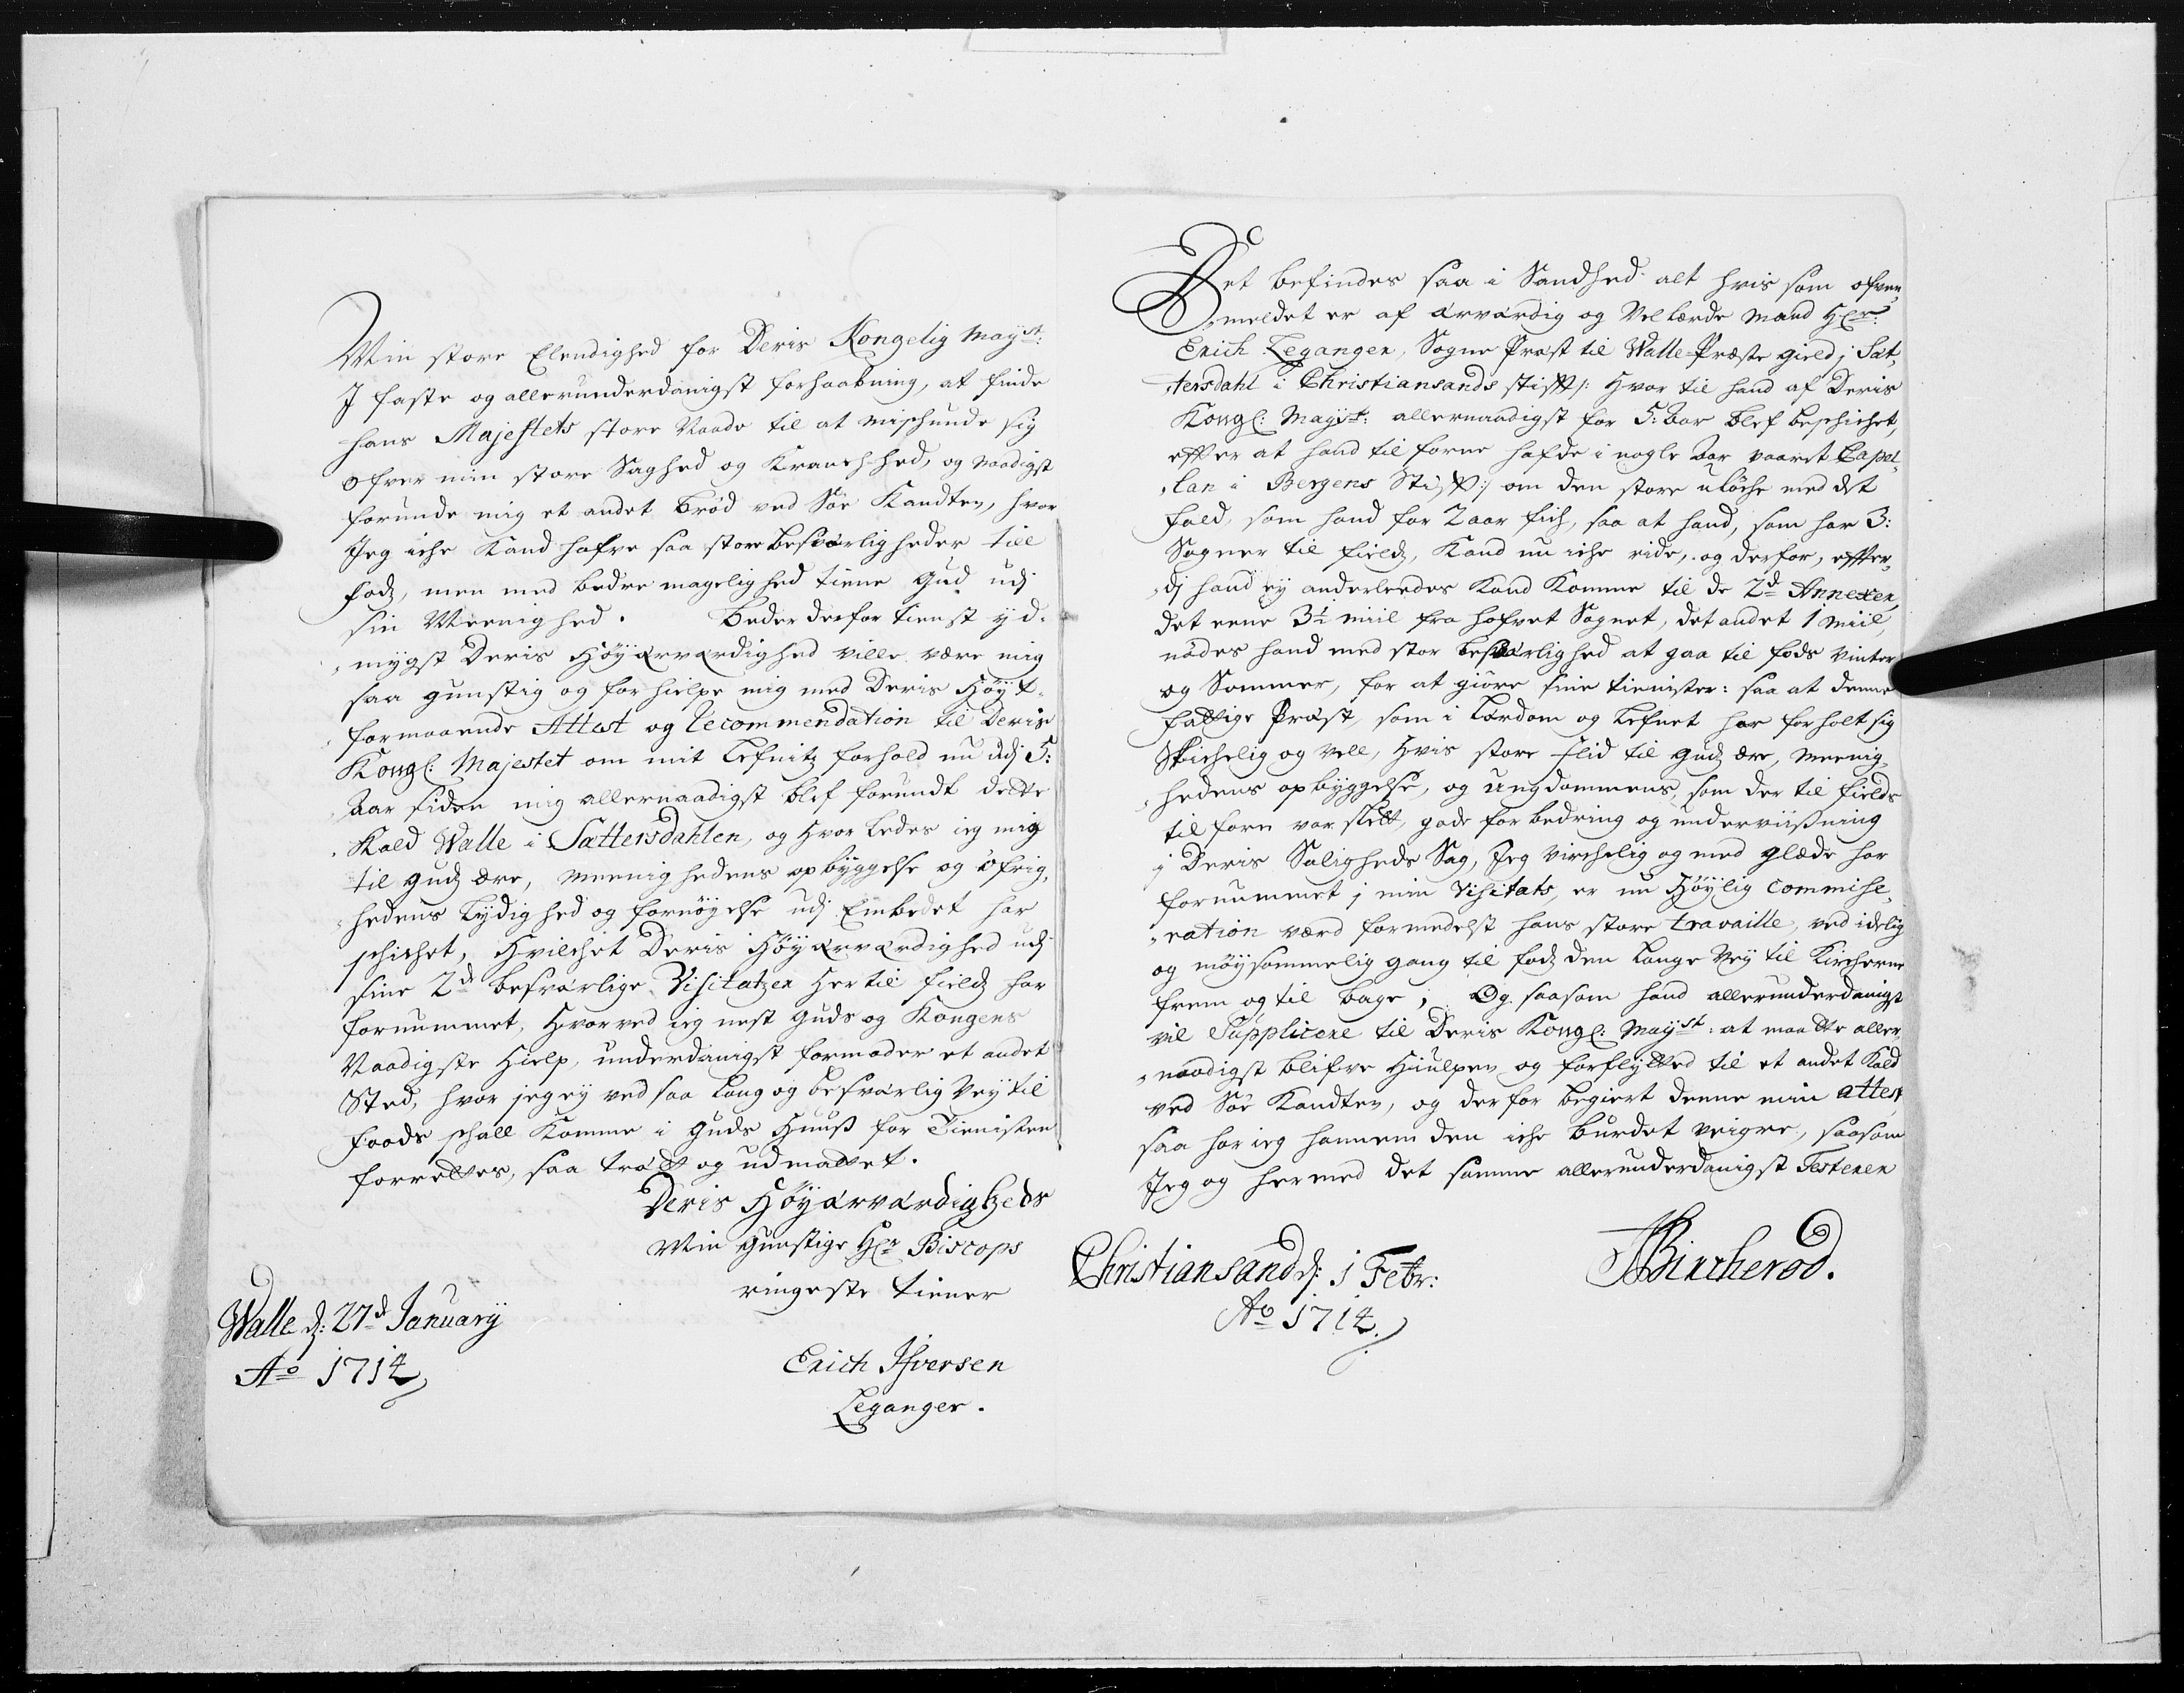 Min store Elendighed for Deris Kongelig Mayst:
I faste og allerunderdanigst forhaabning, at finde
hans Majestets store Naade til at mischunde sig
ofver min store Saghed og Kranchhed, og Naadigst
forunde mig et andet brød ved Søe Kandten, hvor
Jeg iche Kand hafve saa store besværligheder till
fodz, men med bedre magelighed tiene Gud udj
sin Meenighed. Beder derfor tienst yd-
mygst Deris Høyærværdighed ville være mig
saa gunstig og forhielpe mig med Deris Høyt-
formaaende Attest og Recommendation til Deris
Kongl: Majestet om mit Lefnitz forhold nu udj 5:
Aar siden mig allernaadigst blef forundt dette
Kald Walle i Sættersdahlen, og hvorledes ieg mig
til Gudz ære, Meenighedens opbyggelse og øfrig-
hedens lydighed og fornøyelse udj Embedet har
schichet, Hvilchet Deris Høyærværdighed udj
sine 2de besværlige Visitatzer her til fieldz har
fornummet, Hvorved ieg nest Guds og Kongens
Naadigste Hielp, underdanigst formoder et andet
Sted, hvor jeg ey ved saa lang og besværlig Vey til
foods schall Komme i Guds Huuß for Tienisten
forrettes, saa trætt og udmattet.
Deris Høyærværdigheds
Min gunstige Hr Biscops
ringeste tiener
Walle d: 27d January
Ao 1714
Erich Ifversen
Leganger.
Det befindes saa i Sandhed alt hvis som ofven-
meldet er af ærværdig og Vellærde Mand Hr:
Erich Leganger, Sogne Præst til Walle Præste gield j Sæt-
tersdahl i Christiansands stifft /: Hvor til hand af Deris
Kongl: Mayst: allernaadigst for 5: Aar blef beschichet,
effter at hand til forne hafde i nogle Aar vaaret Capel-
lan i Bergens Stifft :/ om den store uløche med det
fald, som hand for 2 aar fich, saa at hand, som har 3:
Sogner til fieldz, Kand nu iche ride, og derfor, effter-
dj hand ey anderleedes Kand Komme til de 2de Annexer,
det eene 3½ miil fra hofvet Sognet, det andet 1 miil,
nødes hand med stor besværlighed at gaa til fods Vinter
og Sommer, for at giøre sine tienister: saa at denne
fattige Præst, som i Lærdom og Lefnet har forholt sig
Skichelig og vell, Hvis store flid til Gudz ære, Meenig-
hedens opbyggelse, og ungdommens, som der til fields
til forn var slett, gode forbedring og underviißning
j Deris Saligheds Sag, Jeg virchelig og med glæde har
fornummet j min Visitats, er nu Høylig commise-
ration værd formedelst hans store travaille, ved idelig
og møysommelig gang til fodz den lange Vey til Kircherne
frem og til bage; Og saasom hand allerunderdanigst
vil Supplicere til Deris Kongl: Mayst: at maatte aller-
naadigst blifve Hiulpen og forflytted til et andet Kald
ved Søe Kandten, og derfor begiert denne min attest
saa har ieg hannem den iche burdet veigre, saasom
Jeg og hermed det samme allerunderdanigst Testerer
Christiansand d: 1 Febr:
Ao 1714
JBircherod.